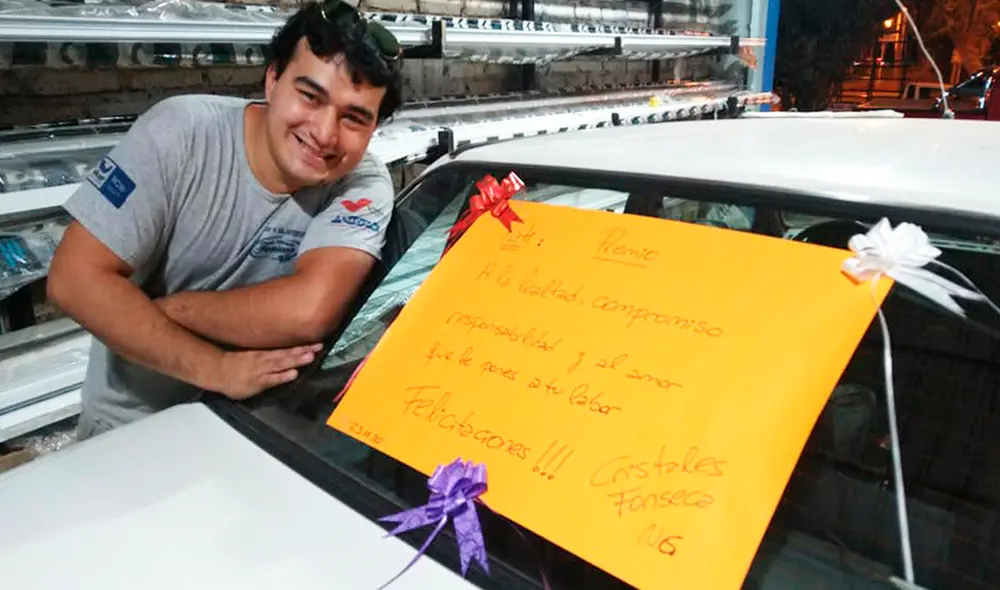 Premio
A la lealtad, compromiso
responsabilidad y al amor
que le pones a tu labor
Felicitaciones!!!
23.11.20
Cristales
Fonseca